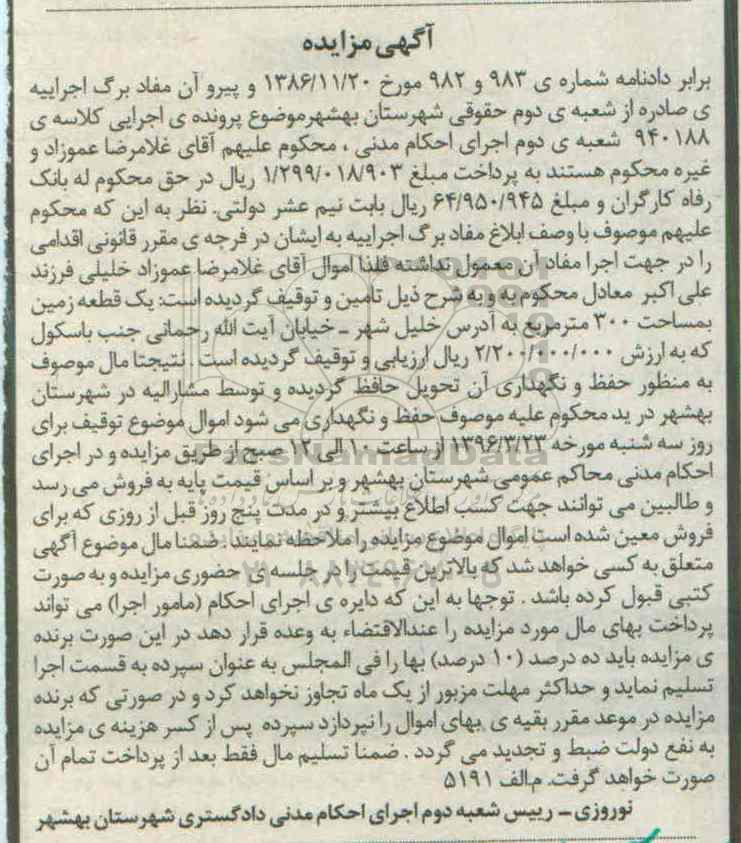 آگهی مزایده
برابر دادنامه شماره ی ۹۸۳ و ۹۸۲ مورخ ۱۳۸۶/۱۱/۲۰ و پیرو آن مفاد برگ اجراییه
ی صادره از شعبه ی دوم حقوقی شهرستان بهشهرموضوع پرونده ی اجرایی کلاسه ی
۹۴۰۱۸۸ شعبه ی دوم اجرای احکام مدنی ، محکوم علیهم آقای غلامرضا عموزاد و
غیره محکوم هستند به پرداخت مبلغ ۱/۲۹۹/۰۱۸/۹۰۳ ریال در حق محکوم له بانک
رفاه کارگران و مبلغ ۶۴/۹۵۰/۹۴۵ ریال بابت نیم عشر دولتی. نظر به این که محکوم
علیهم موصوف با وصف ابلاغ مفاد برگ اجراییه به ایشان در فرجه ی مقرر قانونی اقدامی
را در جهت اجرا مفاد آن معمول نداشته فلذا اموال آقای غلامرضا عموزاد خلیلی فرزند
علی اکبر معادل محکوم به و به شرح ذیل تامین و توقیف گردیده است: یک قطعه زمین
بمساحت ۳۰۰ مترمربع به آدرس خلیل شهر ـ خیابان آیت الله رحمانی جنب باسکول
که به ارزش ۲/۲۰۰/۰۰۰/۰۰۰ ریال ارزیابی و توقیف گردیده است . نتیجتا مال موصوف
به منظور حفظ و نگهداری آن تحویل حافظ گردیده و توسط مشارالیه در شهرستان
بهشهر در ید محکوم علیه موصوف حفظ و نگهداری می شود اموال موضوع توقیف برای
روز سه شنبه مورخه ۱۳۹۶/۳/۲۳ از ساعت ۱۰ الی ۱۲ صبح از طریق مزایده و در اجرای
احکام مدنی محاکم عمومی شهرستان بهشهر و بر اساس قیمت پایه به فروش می رسد
و طالبین می توانند جهت کسب اطلاع بیشتر و در مدت پنج روز قبل از روزی که برای
فروش معین شده است اموال موضوع مزایده را ملاحظه نمایند . ضمنا مال موضوع آگهی
متعلق به کسی خواهد شد که بالاترین قیمت را در جلسه ی حضوری مزایده و به صورت
کتبی قبول کرده باشد . توجها به این که دایره ی اجرای احکام (مامور اجرا) می تواند
پرداخت بهای مال مورد مزایده را عندالاقتضاء به وعده قرار دهد در این صورت برنده
ی مزایده باید ده درصد (۱۰ درصد) بها را فی المجلس به عنوان سپرده به قسمت اجرا
تسلیم نماید و حداکثر مهلت مزبور از یک ماه تجاوز نخواهد کرد و در صورتی که برنده
مزایده در موعد مقرر بقیه ی بهای اموال را نپردازد سپرده پس از کسر هزینه ی مزایده
به نفع دولت ضبط و تجدید می گردد . ضمنا تسلیم مال فقط بعد از پرداخت تمام آن
صورت خواهد گرفت. م.الف ۵۱۹۱
نوروزی ـ رییس شعبه دوم اجرای احکام مدنی دادگستری شهرستان بهشهر